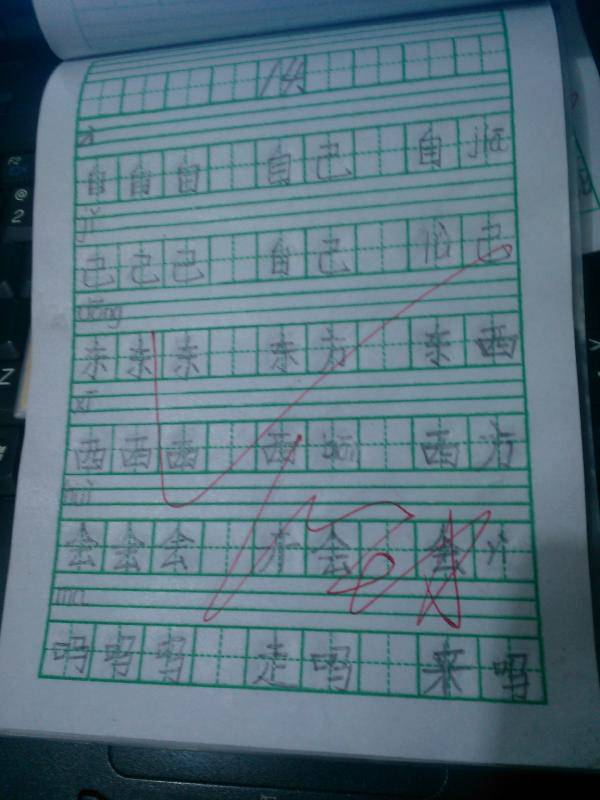 自 自 自 自己 自jiā
jǐ
己 己 己 自己 己
dōng
东 东 东 东方 东西
xī
西 西 西 西 西方
huì
会 会 会 开会 会
ma
吗 吗 吗 走吗 来吗